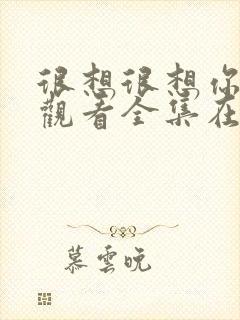 很想很想你
觀看全集在
慕雲晚